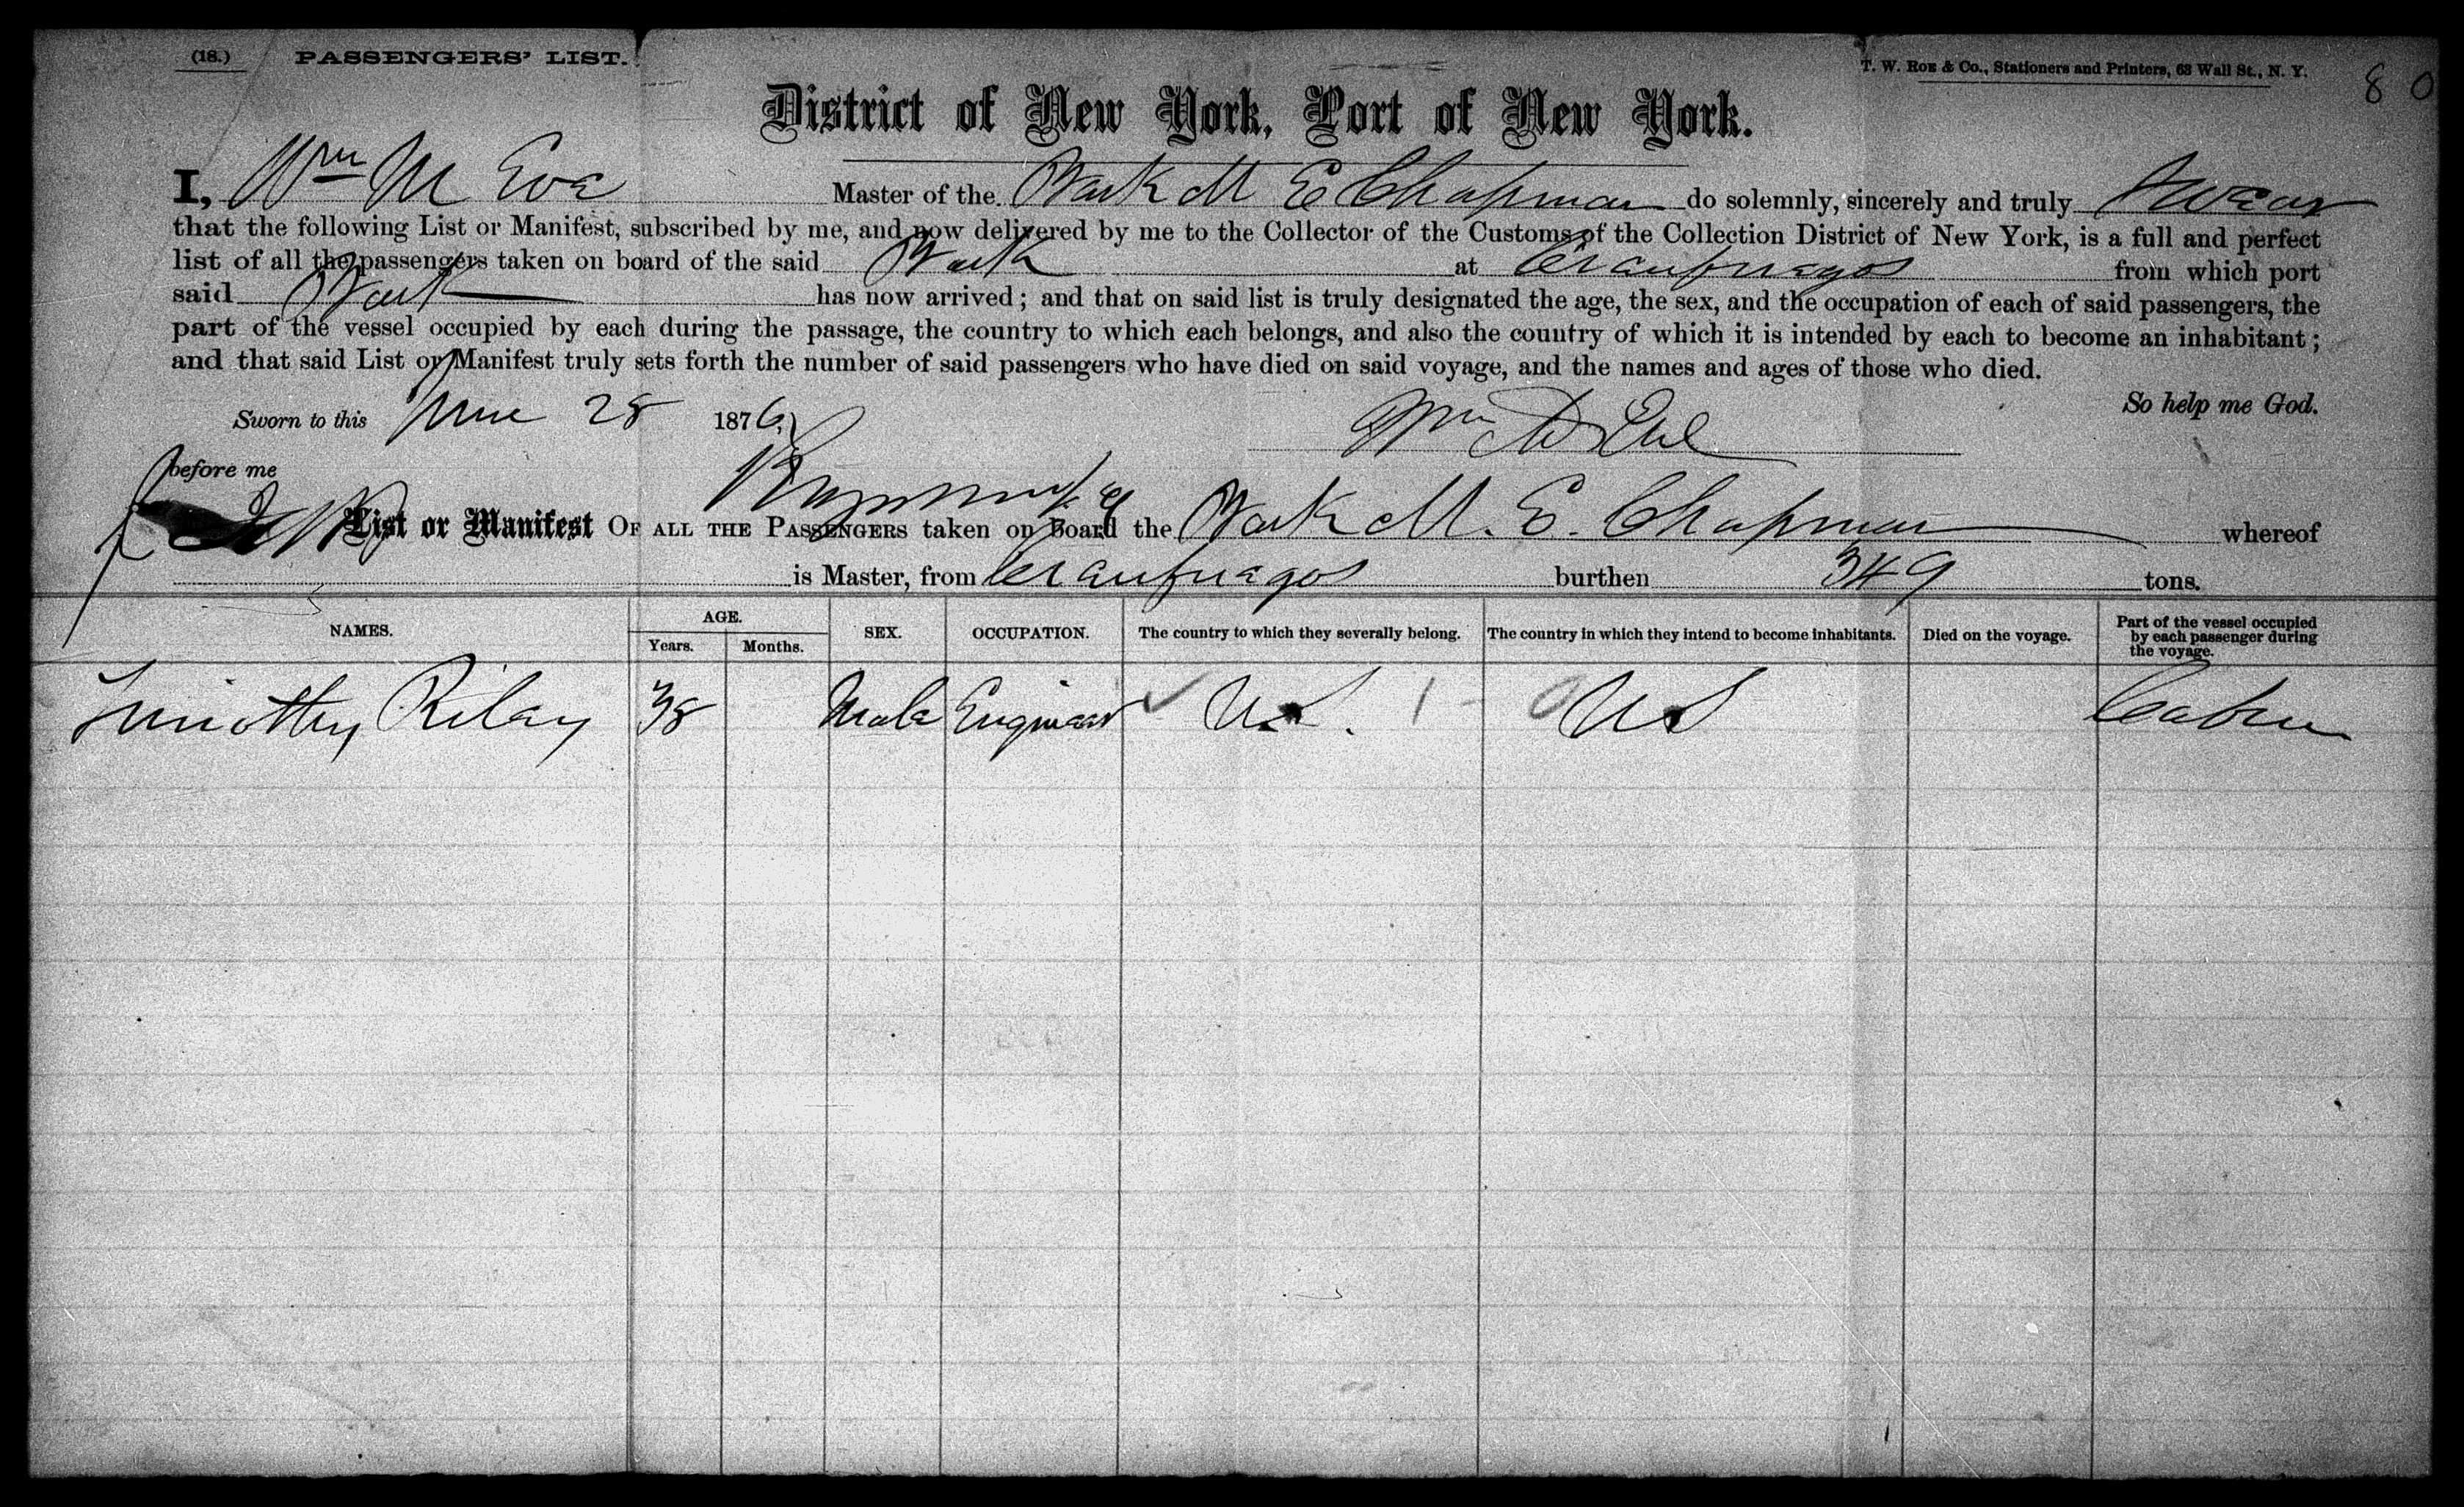 (18.) PASSENGERS' LIST.
T. W. ROE & Co., Stationers and Printers, 63 Wall St., N. Y.
80
District of New York, Port of New York.
I, Wm M Eve Master of the Bark M E Chapman do solemnly, sincerely and truly swear
that the following List or Manifest, subscribed by me, and now delivered by me to the Collector of the Customs of the Collection District of New York, is a full and perfect
list of all the passengers taken on board of the said Bark at Cienfuegos from which port
said Bark has now arrived; and that on said list is truly designated the age, the sex, and the occupation of each of said passengers, the
part of the vessel occupied by each during the passage, the country to which each belongs, and also the country of which it is intended by each to become an inhabitant;
and that said List or Manifest truly sets forth the number of said passengers who have died on said voyage, and the names and ages of those who died.
So help me God.
Sworn to this June 28 1876,
Wm
before me
List or Manifest OF ALL THE PASSENGERS taken on Board the Bark M. E. Chapman whereof
is Master, from Cienfuegos burthen 349 tons.
NAMES. AGE. Years. Months. SEX. OCCUPATION. The country to which they severally belong. The country in which they intend to become inhabitants. Died on the voyage. Part of the vessel occupied by each passenger during the voyage.
Timothy Riley 38 Male Engineer U.S. 1 - 0 US Cabin